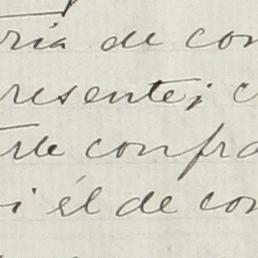 ria de con
resente; c
rte confra
i él de con